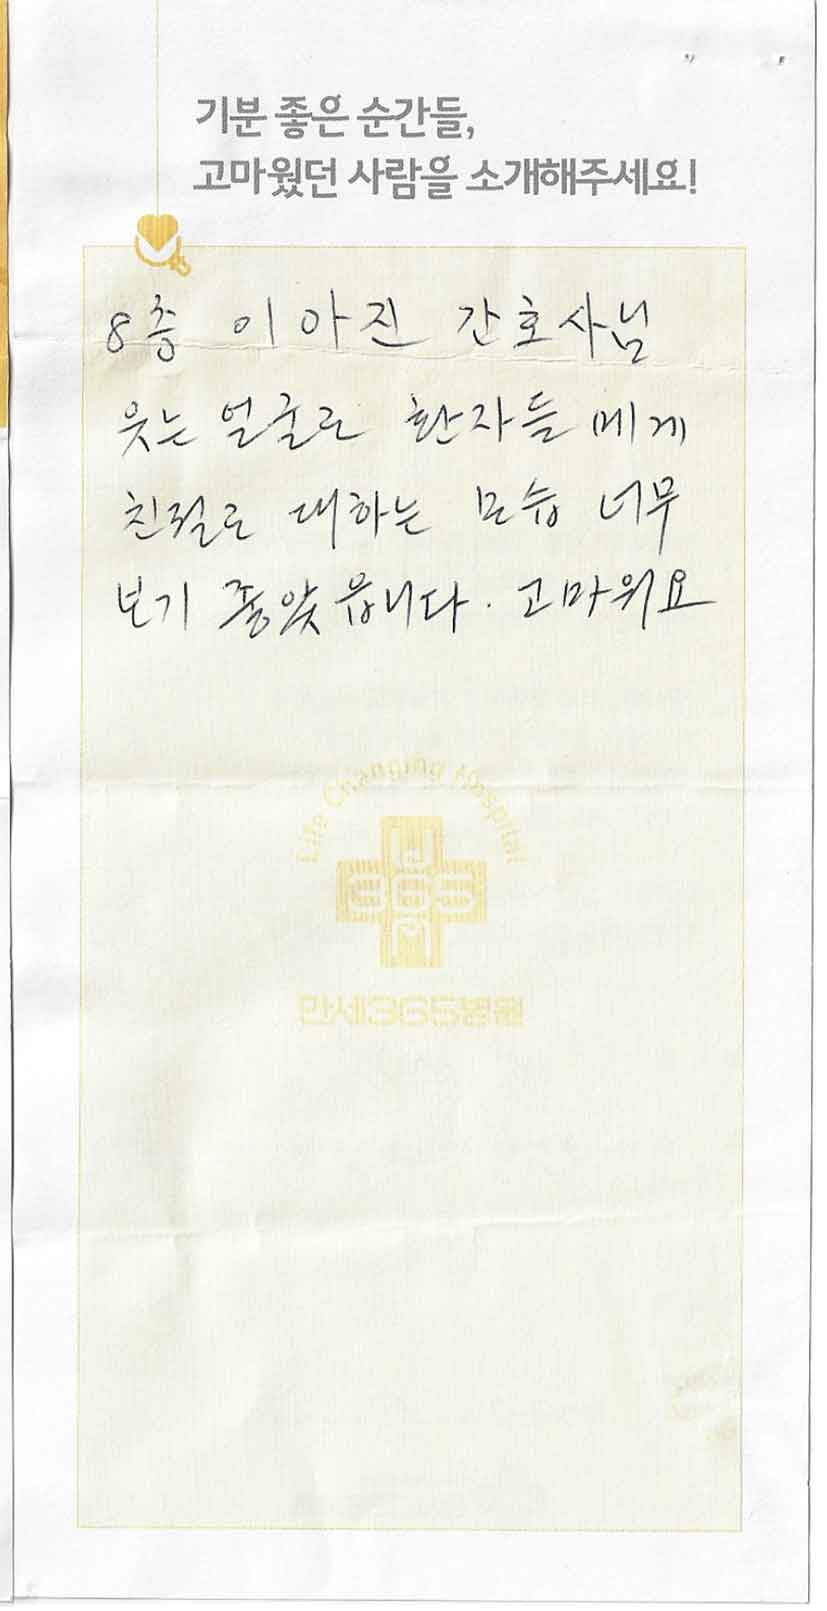 기분 좋은 순간들,
고마웠던 사람을 소개해주세요!
8층 이아진 간호사님
웃는 얼굴로 환자들 에게
친절로 대하는 모습 너무
보기 좋았읍니다. 고마워요
Life Changing Hospital
365
만세365병원